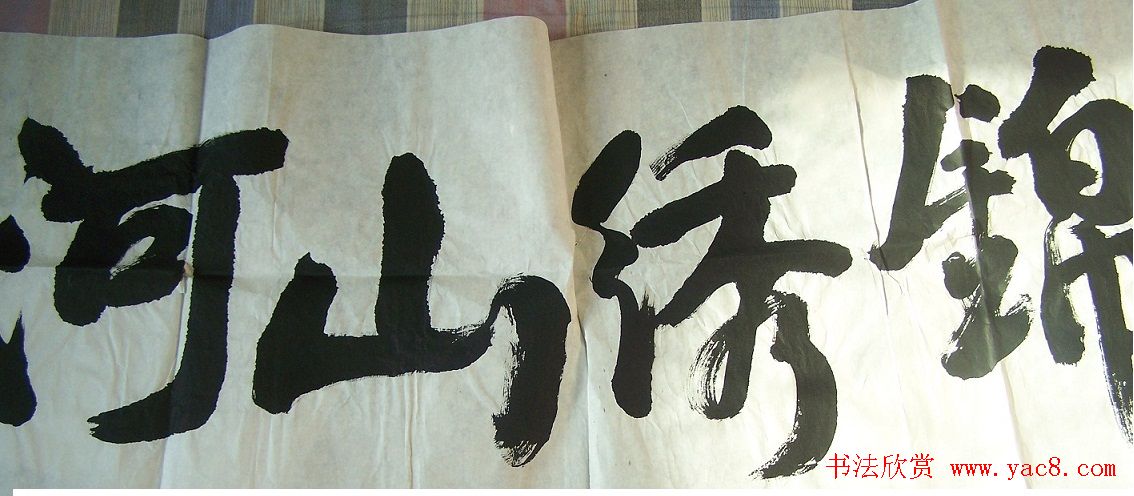 锦绣山河
书法欣赏 www.yac8.com